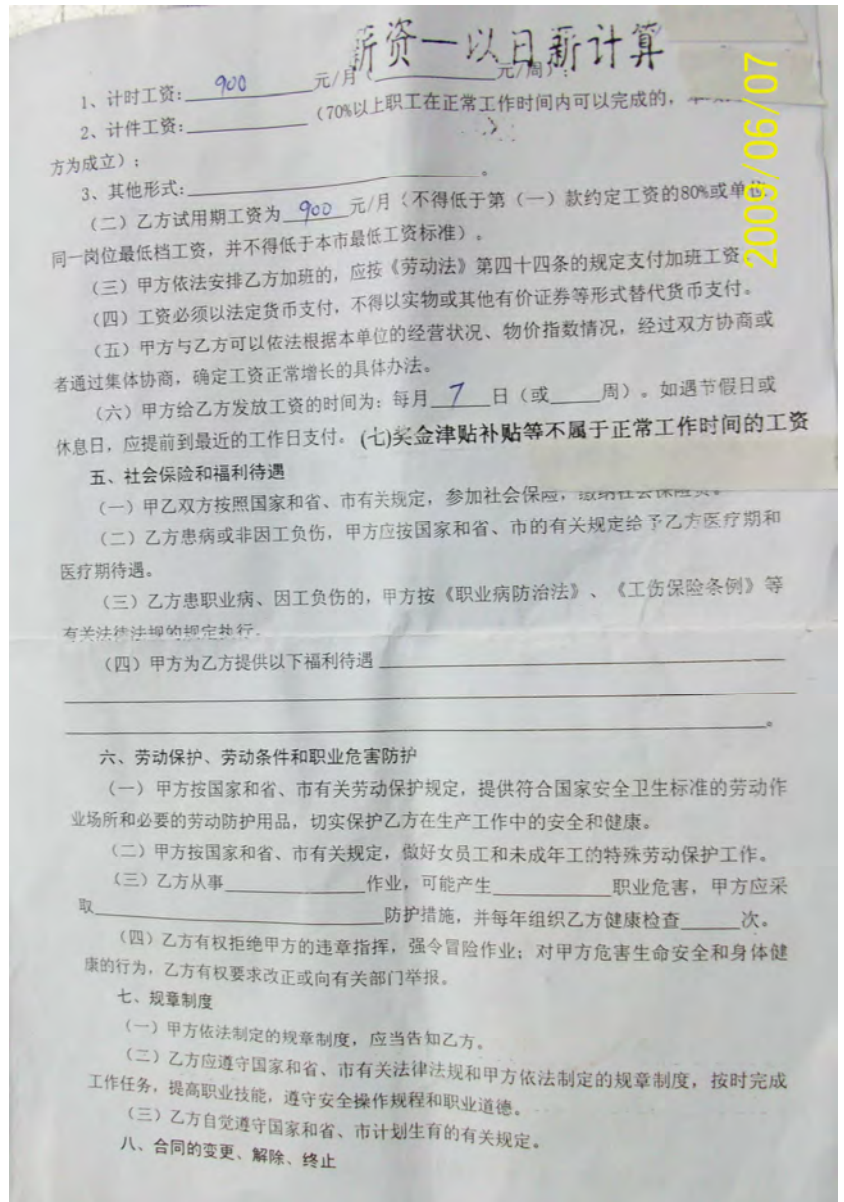 薪资一以日薪计算
1、计时工资:900元/月(______元/周);
2、计件工资:______(70%以上职工在正常工作时间内可以完成的,
方为成立);
3、其他形式:______。
(二)乙方试用期工资为 900 元/月(不得低于第(一)款约定工资的80%或单位
同一岗位最低档工资,并不得低于本市最低工资标准)。
(三)甲方依法安排乙方加班的,应按《劳动法》第四十四条的规定支付加班工资
(四)工资必须以法定货币支付,不得以实物或其他有价证券等形式替代货币支付。
(五)甲方与乙方可以依法根据本单位的经营状况、物价指数情况,经过双方协商或
者通过集体协商,确定工资正常增长的具体办法。
(六)甲方给乙方发放工资的时间为:每月 7 日(或____周)。如遇节假日或
休息日,应提前到最近的工作日支付。(七)奖金津贴补贴等不属于正常工作时间的工资
五、社会保险和福利待遇
(一)甲乙双方按照国家和省、市有关规定,参加社会保险,缴纳社会保险费。
(二)乙方患病或非因工负伤,甲方应按国家和省、市的有关规定给予乙方医疗期和
医疗期待遇。
(三)乙方患职业病、因工负伤的,甲方按《职业病防治法》、《工伤保险条例》等
有关法律法规的规定执行。
(四)甲方为乙方提供以下福利待遇______
______。
六、劳动保护、劳动条件和职业危害防护
(一)甲方按国家和省、市有关劳动保护规定,提供符合国家安全卫生标准的劳动作
业场所和必要的劳动防护用品,切实保护乙方在生产工作中的安全和健康。
(二)甲方按国家和省、市有关规定,做好女员工和未成年工的特殊劳动保护工作。
(三)乙方从事______作业,可能产生______职业危害,甲方应采
取______防护措施,并每年组织乙方健康检查____次。
(四)乙方有权拒绝甲方的违章指挥,强令冒险作业;对甲方危害生命安全和身体健
康的行为,乙方有权要求改正或向有关部门举报。
七、规章制度
(一)甲方依法制定的规章制度,应当告知乙方。
(二)乙方应遵守国家和省、市有关法律法规和甲方依法制定的规章制度,按时完成
工作任务,提高职业技能,遵守安全操作规程和职业道德。
(三)乙方自觉遵守国家和省、市计划生育的有关规定。
八、合同的变更、解除、终止
2009/06/07